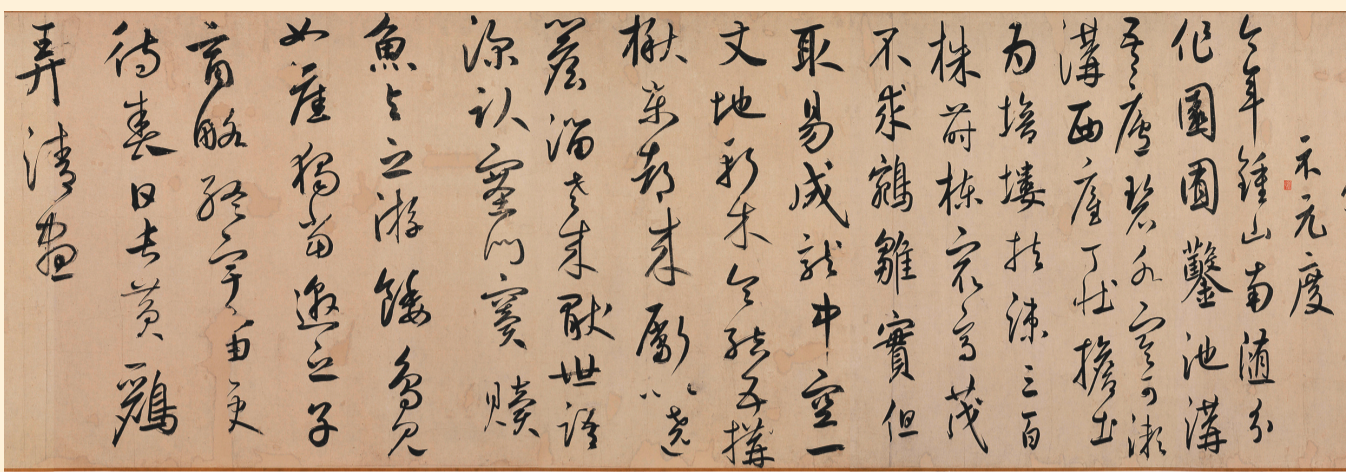 示元度
今年鍾山南隨分
作園囿鑿池溝
吾廬碧水寒可漱
溝西雇丁壯擔土
為培塿扶疎三百
株蒔楝最高茂
不求鵷雛實但
取易成就中空一
丈地斬木令結五搆
楸東都來斸以繞
簷溜老來厭世語
深臥塞門竇贖
魚與之游餧鳥見
如舊獨當邀之子
商略終宇宙更
待春日長黃鸝
弄清晝